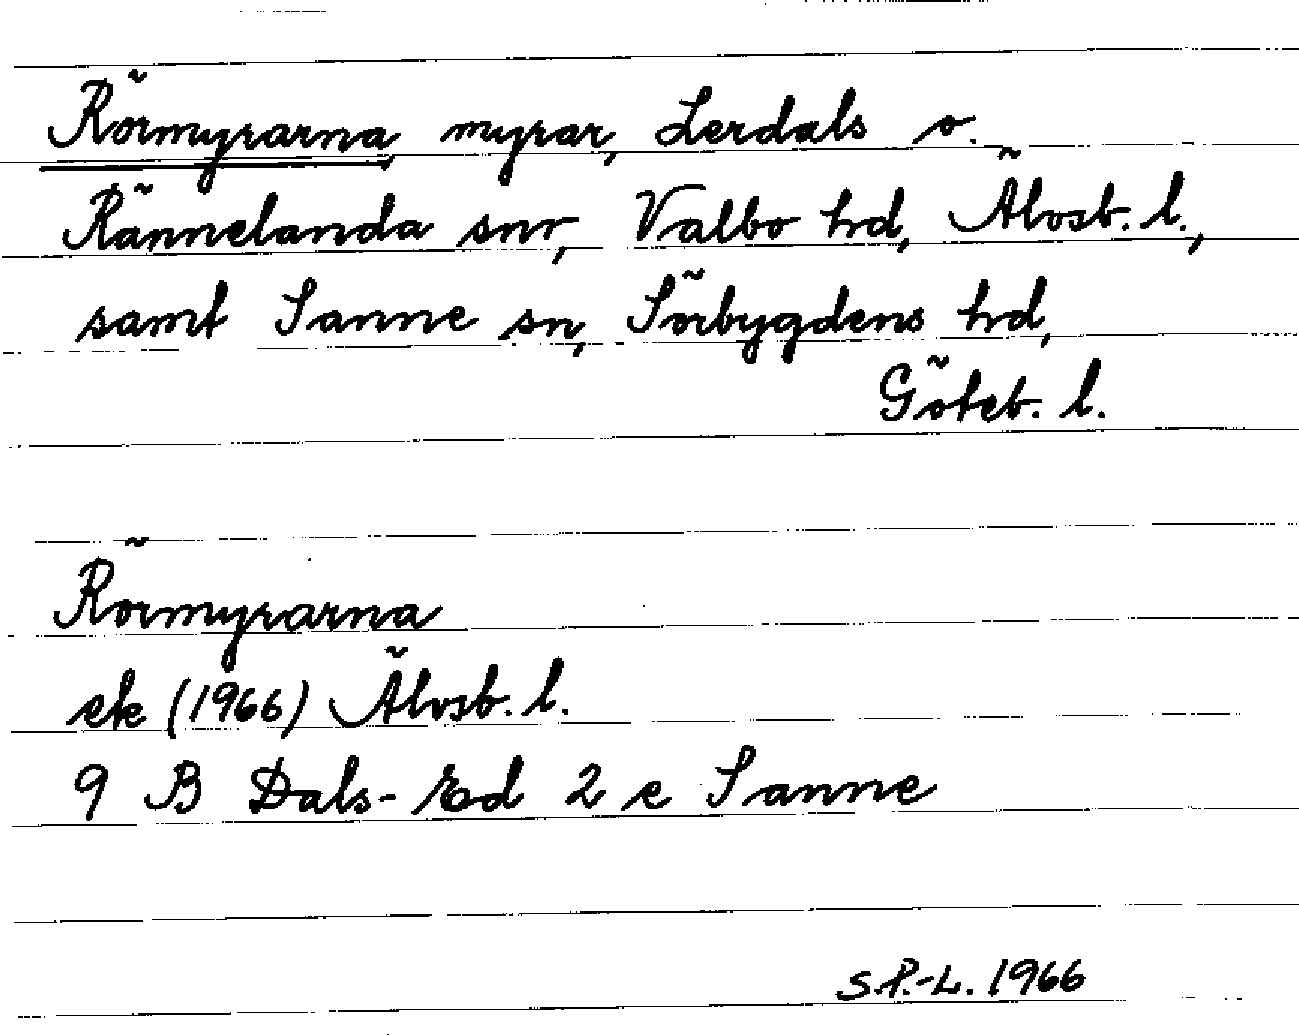 Rörmyrarna, myrar, Lerdals o.
Rännelanda snr, Valbo hd, Älvsb. l.,
samt Sanne sn, Sörbygdens hd,
Göteb. l.
Rörmyrarna
ek (1966) Älvsb. l.
9 B Dals-Ed 2 e Sanne
S.P.-L. 1966